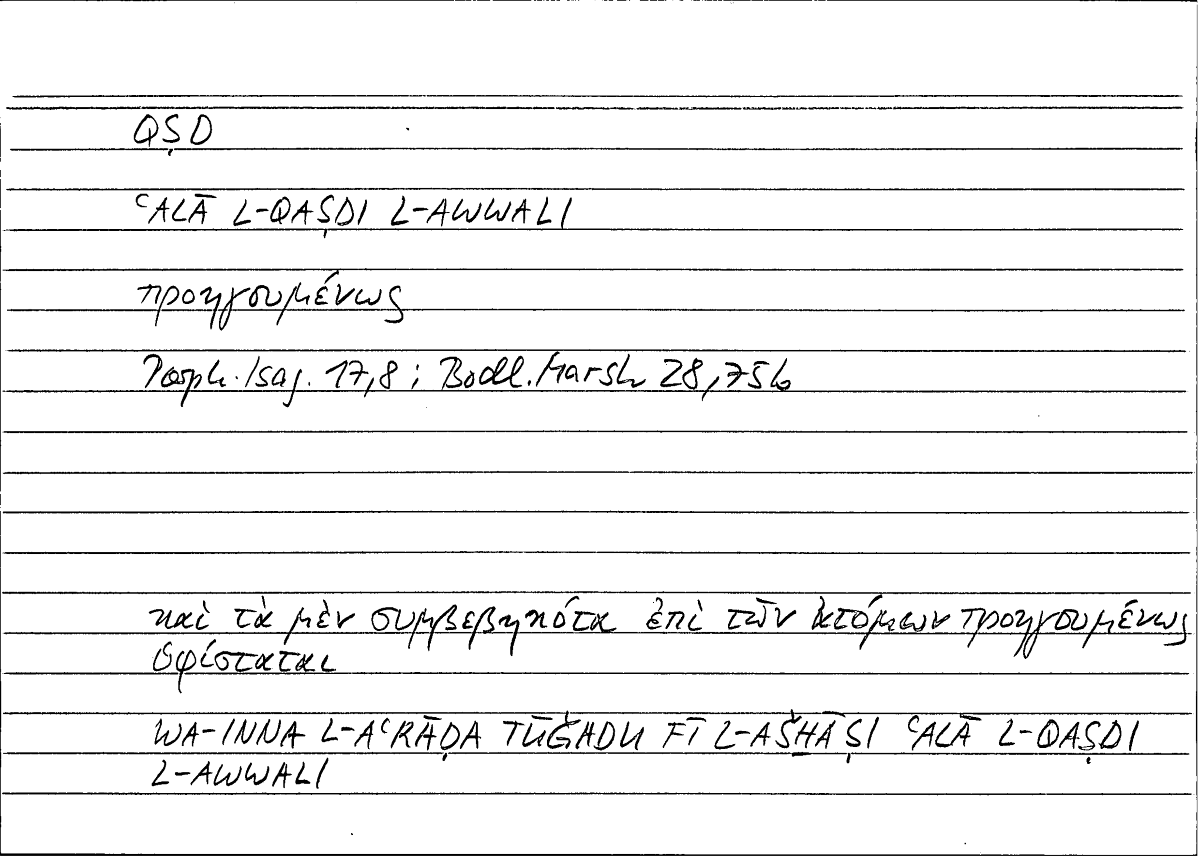 QṢD
ʿALĀ L-QAṢDI L-AWWALI
προηγουμένως
Porph. Isag. 17,8 ; Bodl. Marsh 28,75b
καὶ τὰ μὲν συμβεβηκότα ἐπὶ τῶν ἀτόμων προηγουμένως
ὑφίσταται
WA-INNA L-AʿRĀḌA TŪǦADU FĪ L-AŠḪĀṢI ʿALĀ L-QAṢDI
L-AWWALI